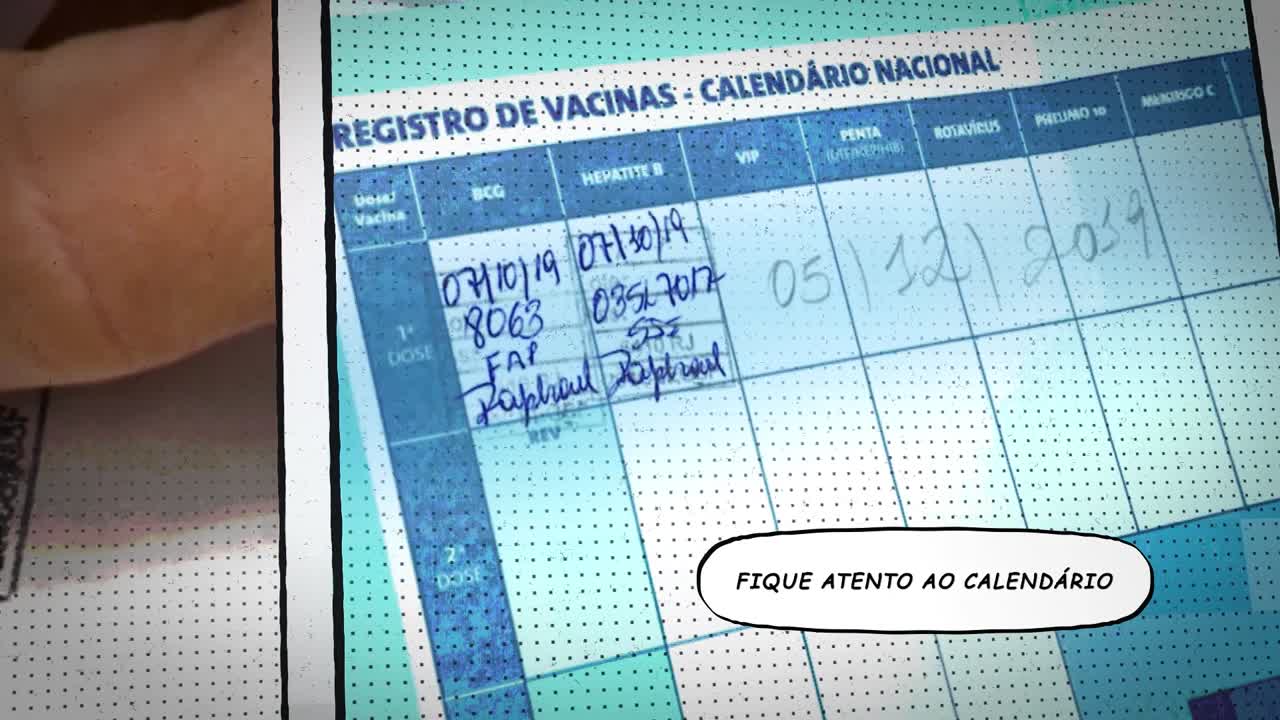 REGISTRO DE VACINAS - CALENDÁRIO NACIONAL
Dose/
Vacina
BCG
HEPATITE B
VIP
PENTA
(DTP/HEP/HIB)
ROTAVÍRUS
PNEUMO 10
MENINGO C
1ª
DOSE
07/10/19
8063
FAP
Raphael
07/10/19
SSE
Raphael
05/12/2019
REV
2ª
DOSE
FIQUE ATENTO AO CALENDÁRIO